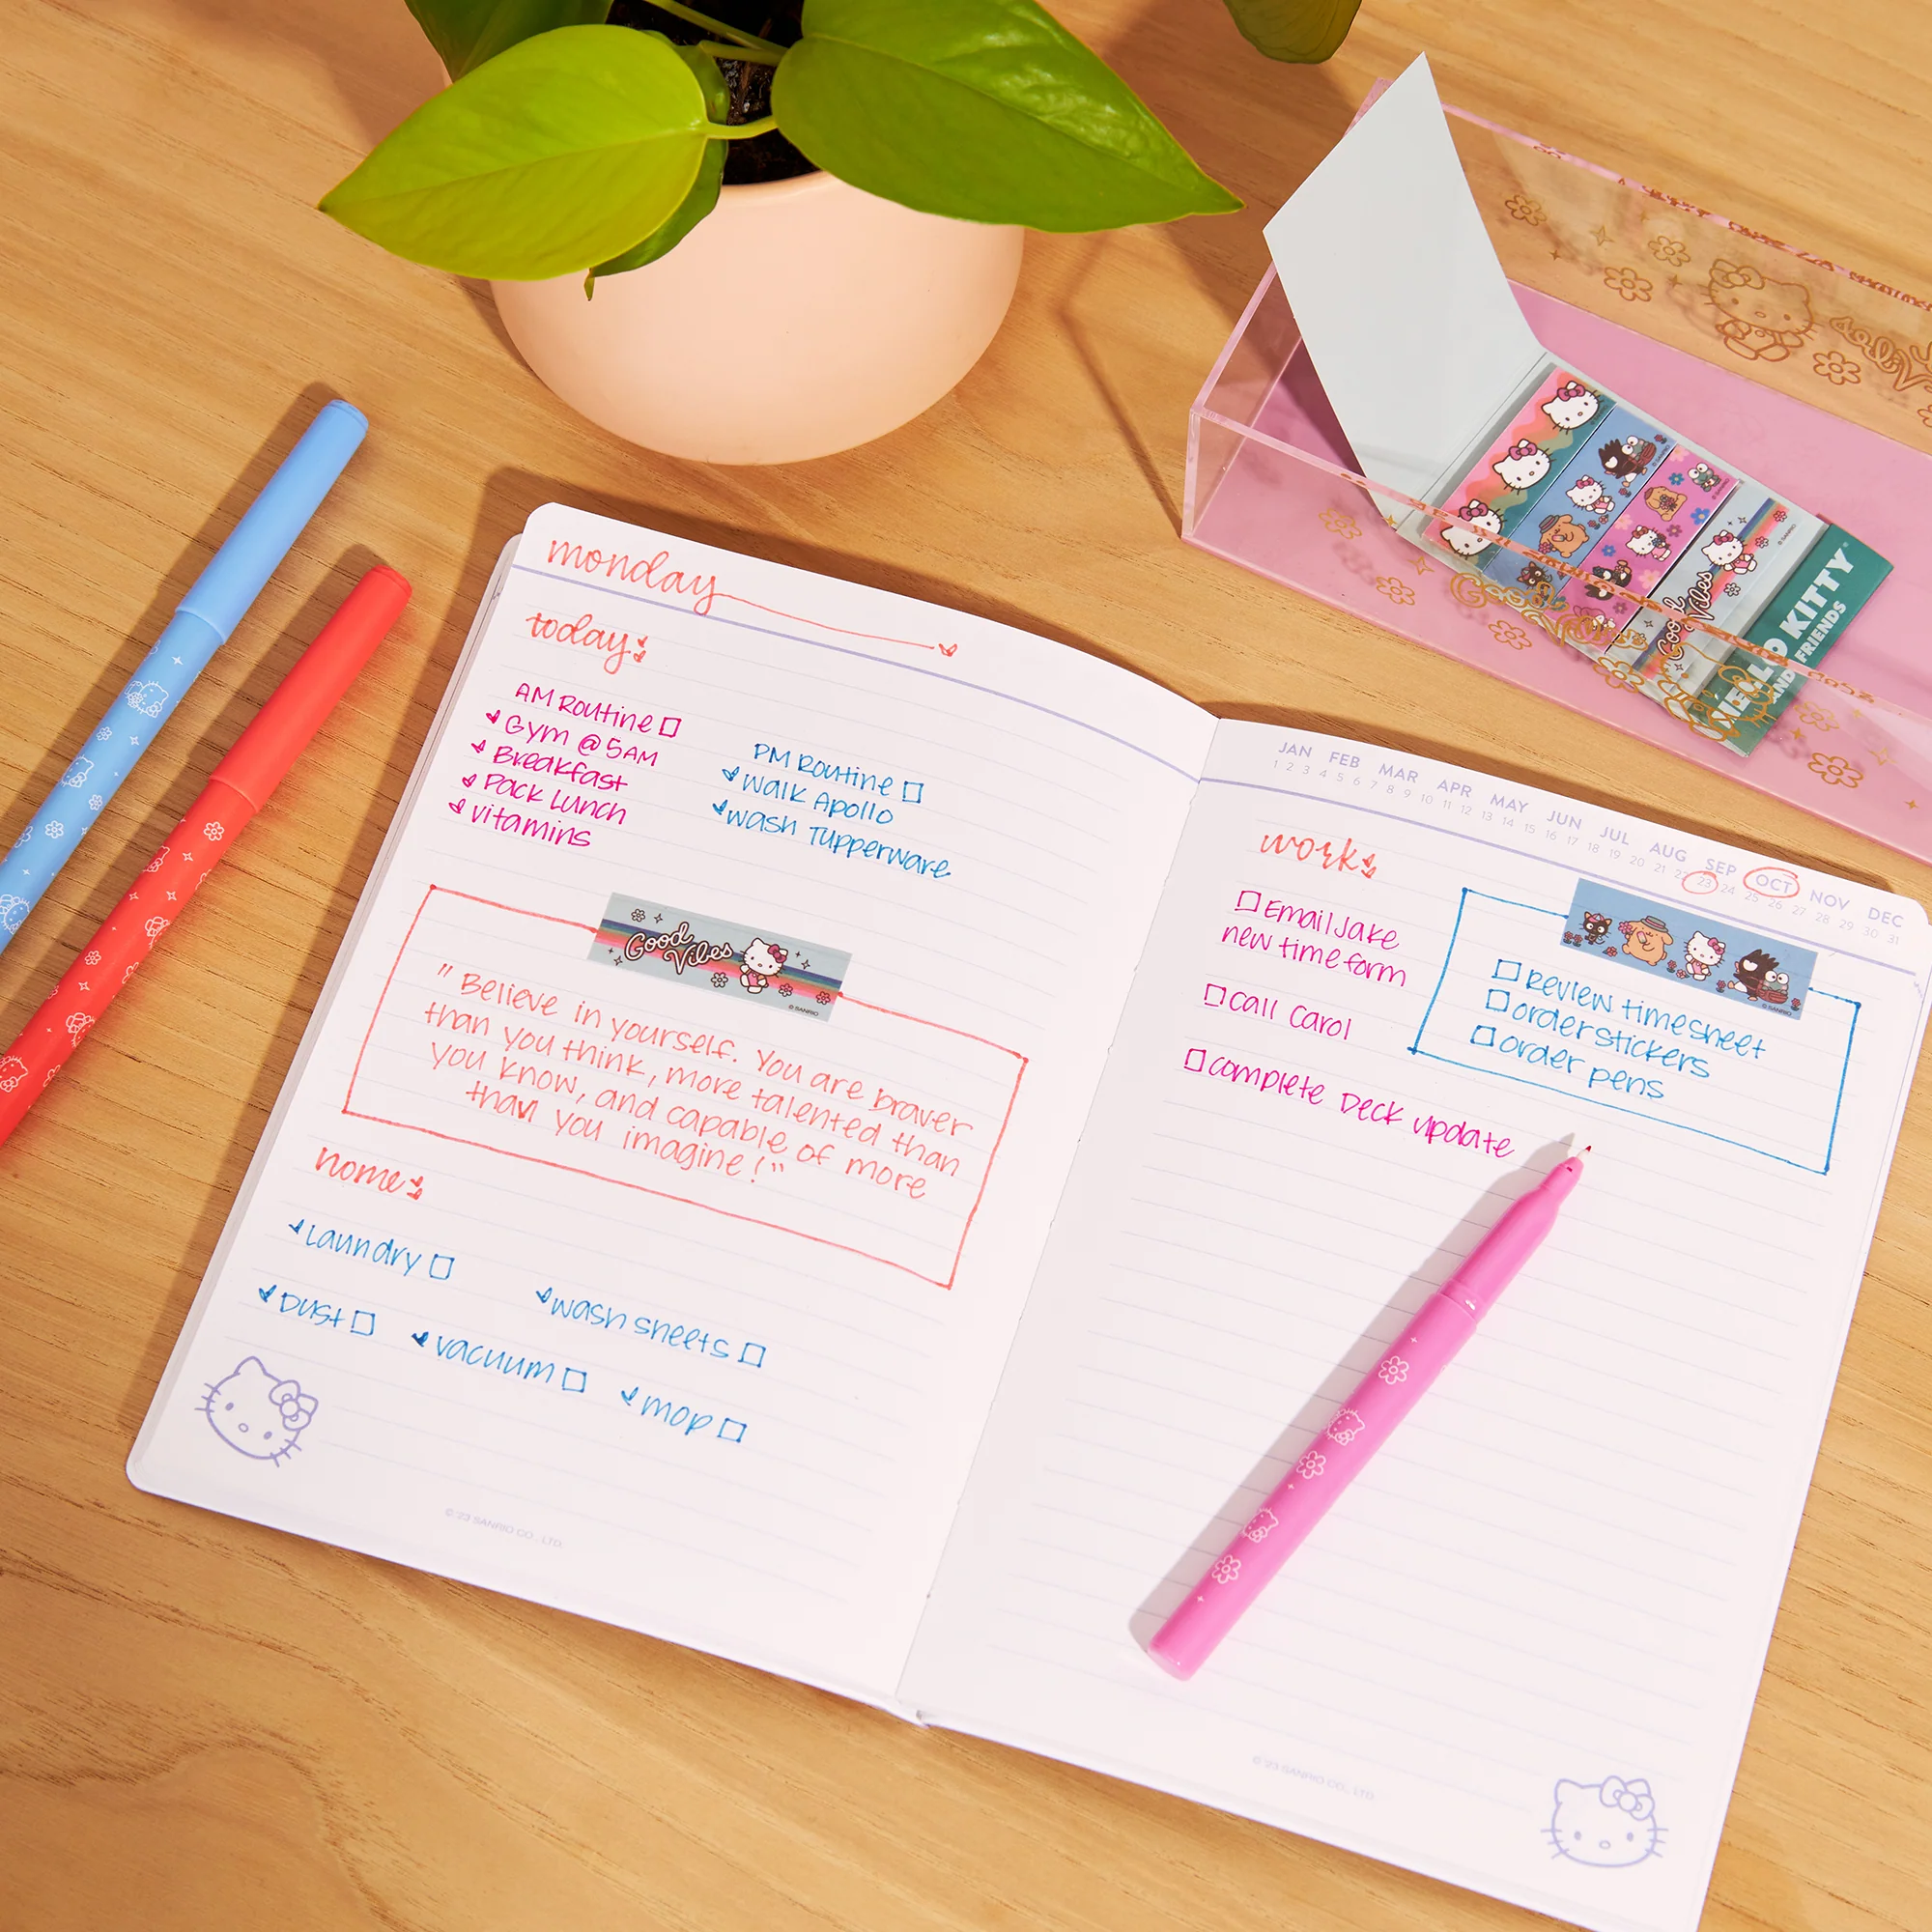 monday
today
AM Routine
Gym @ 5AM
Breakfast
Pack Lunch
vitamins
PM Routine
Walk Apollo
wash Tupperware
Good
Vibes
© SANRIO
" Believe in yourself. You are braver
than you think, more talented than
you know, and capable of more
than you imagine! "
home
Laundry
wash sheets
Dust
vacuum
mop
© '23 SANRIO CO., LTD.
JAN FEB MAR APR MAY JUN JUL AUG SEP OCT NOV DEC
1 2 3 4 5 6 7 8 9 10 11 12 13 14 15 16 17 18 19 20 21 22 23 24 25 26 27 28 29 30 31
work
Email Jake
new time form
Call Carol
complete Deck update
© SANRIO
Review timesheet
order stickers
order pens
© '23 SANRIO CO., LTD.
Good
Vibes
HELLO KITTY
AND FRIENDS